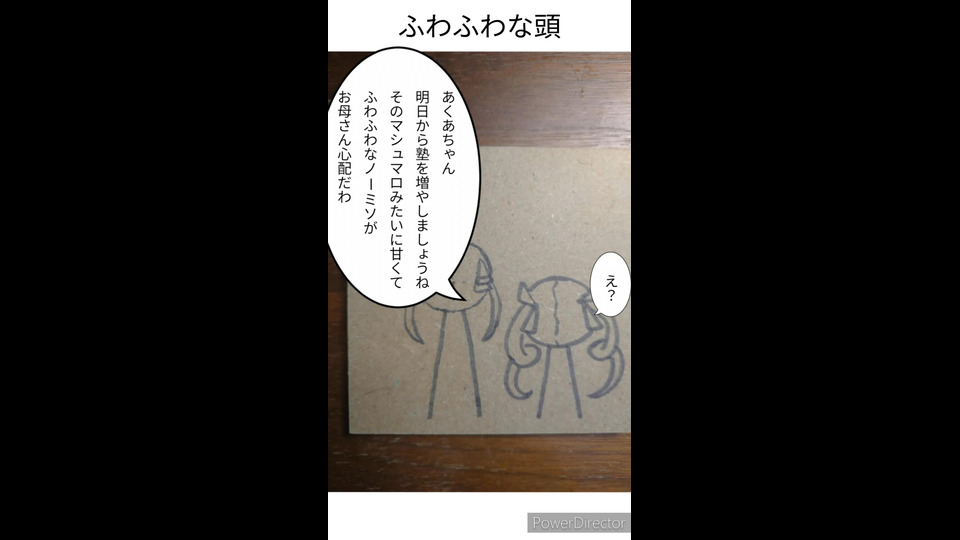 ふわふわな頭
あくあちゃん
明日から塾を増やしましょうね
そのマシュマロみたいに甘くて
ふわふわなノーミソが
お母さん心配だわ
え?
PowerDirector